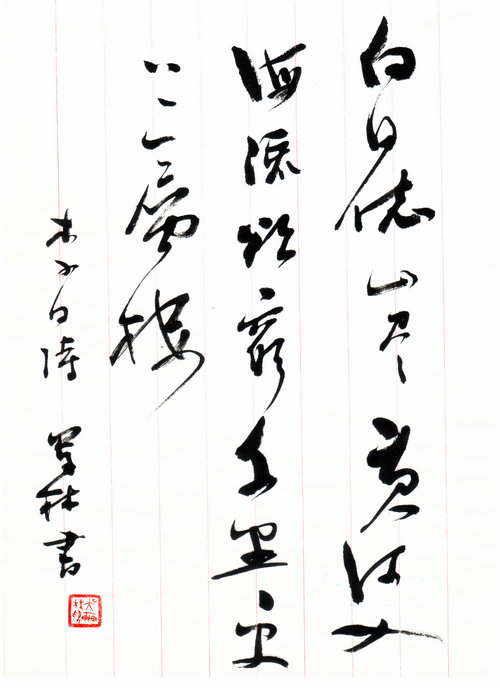 白日依山尽黄河入
海流欲穷千里更
上一层楼
李白诗 林书